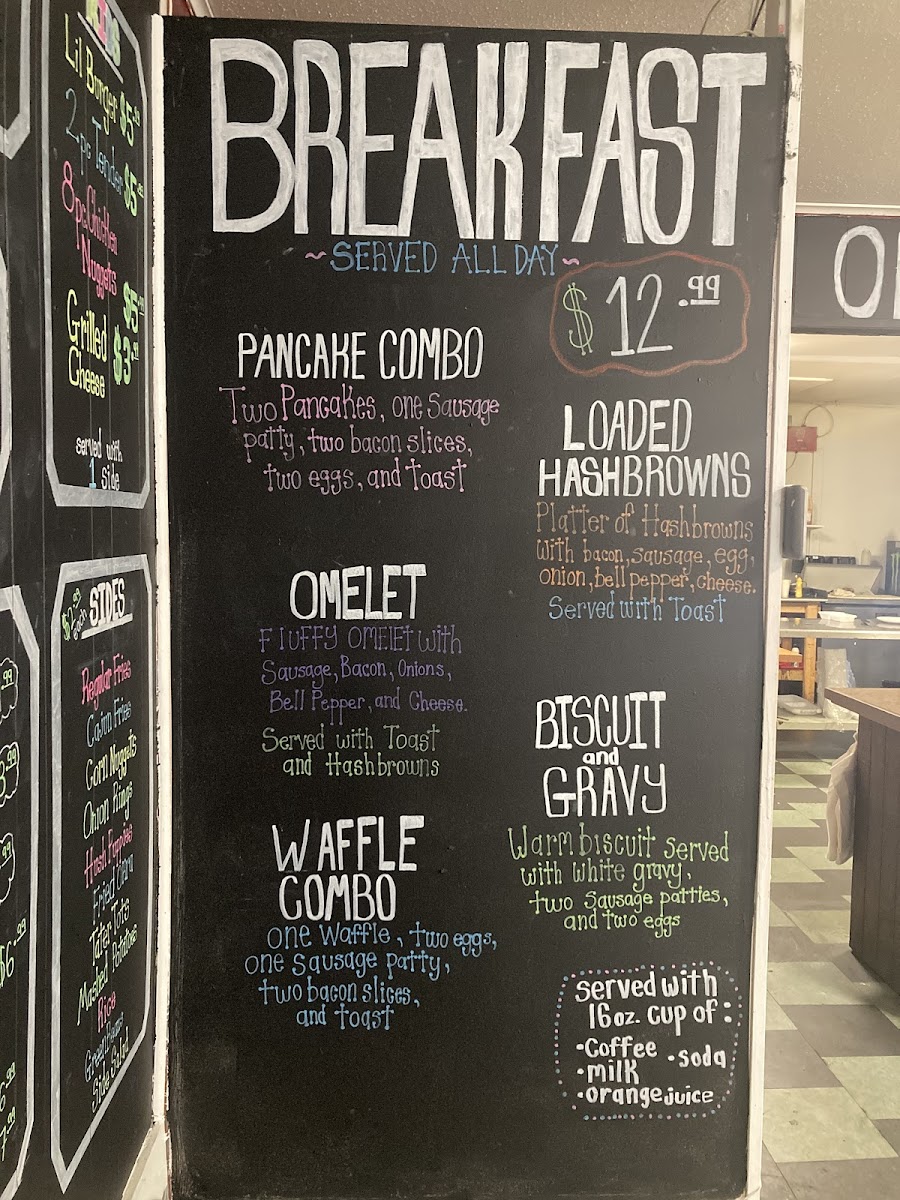 Lil Burger $5
2 pc Tender $5
8pc Chicken
Nuggets
$5
Grilled
Cheese
$3
served with
1 side
SIDES
each
Regular Fries
Cajun Fries
Corn Nuggets
Onion Rings
Hush Puppies
Fried Okra
Tater Tots
Mashed Potatoes
Rice
Green Beans
Side Salad
BREAKFAST
~SERVED ALL DAY~
$12.99
PANCAKE COMBO
Two Pancakes, one Sausage
patty, two bacon slices,
two eggs, and toast
LOADED
HASHBROWNS
Platter of Hashbrowns
with bacon, sausage, egg,
onion, bell pepper, cheese.
Served with Toast
OMELET
Fluffy omelet with
Sausage, Bacon, Onions,
Bell Pepper, and Cheese.
Served with Toast
and Hashbrowns
BISCUIT
and
GRAVY
Warm biscuit served
with white gravy,
two sausage patties,
and two eggs
WAFFLE
COMBO
one waffle, two eggs,
one sausage patty,
two bacon slices,
and toast
served with
16oz. cup of:
•Coffee
•soda
•milk
•orange juice